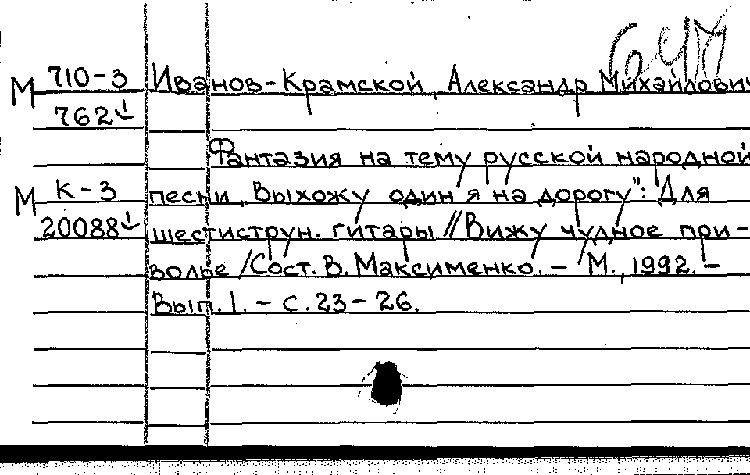 М 710-3 Иванов-Крамской, Александр Михайлович
762
Фантазия на тему русской народной
М К-3 песни „Выхожу один я на дорогу": Для
20088 шестиструн. гитары // Вижу чудное при-
волье / Сост. В. Максименко. - М., 1992. -
Вып. 1. - С. 23-26.